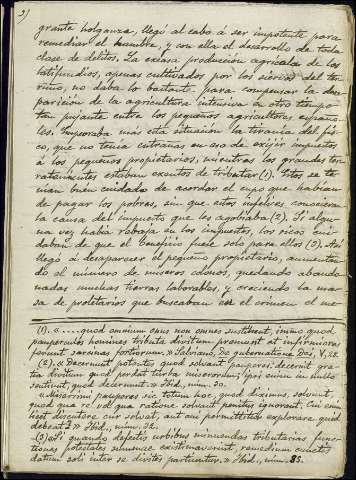 grante holganza, llegó al cabo á ser impotente para
remediar el hambre, y con ella el desarrollo de toda
clase de delitos. La escasa producción agrícola de los
latifundios, apenas cultivados por los siervos del ter
ruño, no daba lo bastante para compensar la desa
parición de la agricultura intensiva en otro tiempo
tan pujante entre los pequeños agricultores españo
les. Empeoraba más esta situación la tiranía del fis
co, que no tenía entrañas en eso de exijir impuestos
á los pequeños propietarios, mientras los grandes ter
ratenientes estaban exentos de tributar (1). Estos se te
nían buen cuidado de acordar el cupo que habían
de pagar los pobres, sin que estos infelices conocieran
la causa del impuesto que les agobiaba (2). Si algu
na vez había rebaja en los impuestos, los ricos cui
daban de que el beneficio fuese solo para ellos (3). Así
llegó á desaparecer el pequeño propietario, aumentan
do el número de míseros colonos, quedando abando
nadas muchas tierras laborables, y creciendo la ma
sa de proletarios que buscaban en el crimen el me
(1). «....quod omnium onus non omnes sustinent, immo quod
pauperculos homines tributa divitum premunt et infirmiores
ferunt sarcinas fortiorum.» Salviano, De gubernatione Dei, V, 28.
(2). «Decernunt potentes quod solvant pauperes, decernit gra
tia divitum quod perdat turba miserorum; ipsi enim in nullo
sentiunt, quod decernunt.» Ibid., núm. 30.
«Miserrimi pauperes sic totum hoc, quod diximus, solvunt,
quod qua re vel qua ratione solvant penitus ignorant. Cui enim
licet discutere cur solvat, aut cui permittitur explorare quid
debeat?» Ibid., núm. 32.
(3) «Si quando defectis urbibus minuendas tributarias func
tiones potestates summae existimaverint, remedium cunctis
datum soli inter se divites partiuntur.» Ibid., núm. 35.